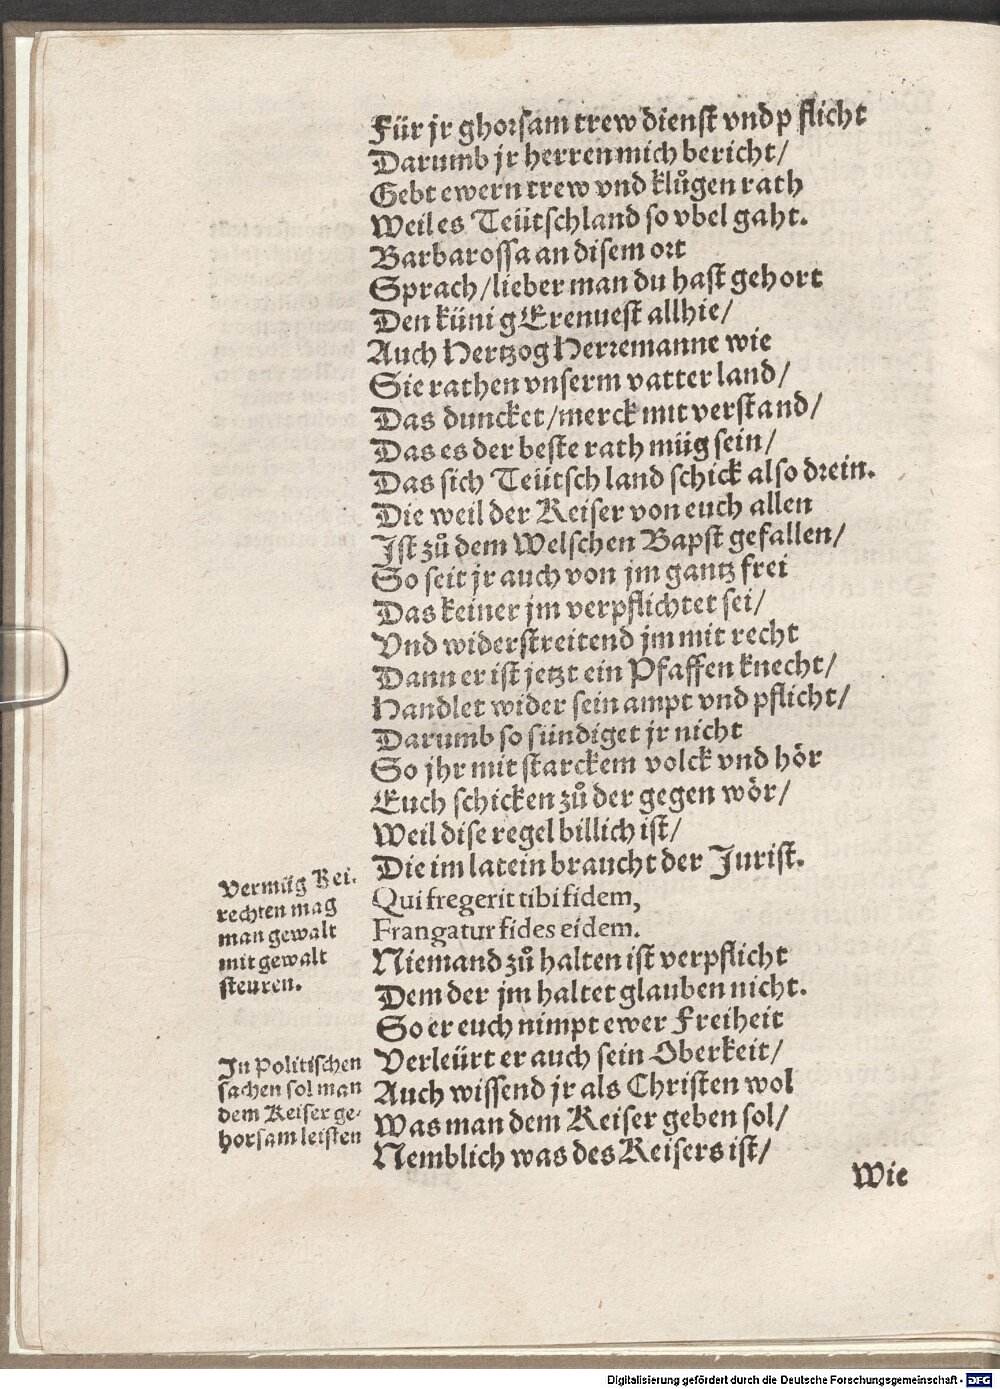 Für jr ghorsam trew dienst vnd pflicht
Darumb jr herren mich bericht/
Gebt ewern trew vnd klůgen rath
Weil es Teütschland so vbel gaht.
Barbarossa an disem ort
Sprach/lieber man du hast gehort
Den künig Erenuest allhie/
Auch Hertzog Herremanne wie
Sie rathen vnserm vatter land/
Das duncket/merck mit verstand/
Das es der beste rath müg sein/
Das sich Teütsch land schick also drein.
Die weil der Keiser von euch allen
Ist zů dem Welschen Bapst gefallen/
So seit jr auch von jm gantz frei
Das keiner jm verpflichtet sei/
Vnd widerstreitend jm mit recht
Dann er ist jetzt ein Pfaffen knecht/
Handlet wider sein ampt vnd pflicht/
Darumb so sündiget jr nicht
So jhr mit starckem volck vnd hör
Euch schicken zů der gegen wör/
Weil dise regel billich ist/
Die im latein braucht der Jurist.
Vermüg Kei.
rechten mag
man gewalt
mit gewalt
steuren.
Qui fregerit tibi fidem,
Frangatur fides eidem.
Niemand zů halten ist verpflicht
Dem der jm haltet glauben nicht.
So er euch nimpt ewer Freiheit
In Politischen
sachen sol man
dem Keiser ge-
horsam leisten
Verleürt er auch sein Oberkeit/
Auch wissend jr als Christen wol
Was man dem Keiser geben sol/
Nemblich was des Keisers ist/
Wie
Digitalisierung gefördert durch die Deutsche Forschungsgemeinschaft - DFG